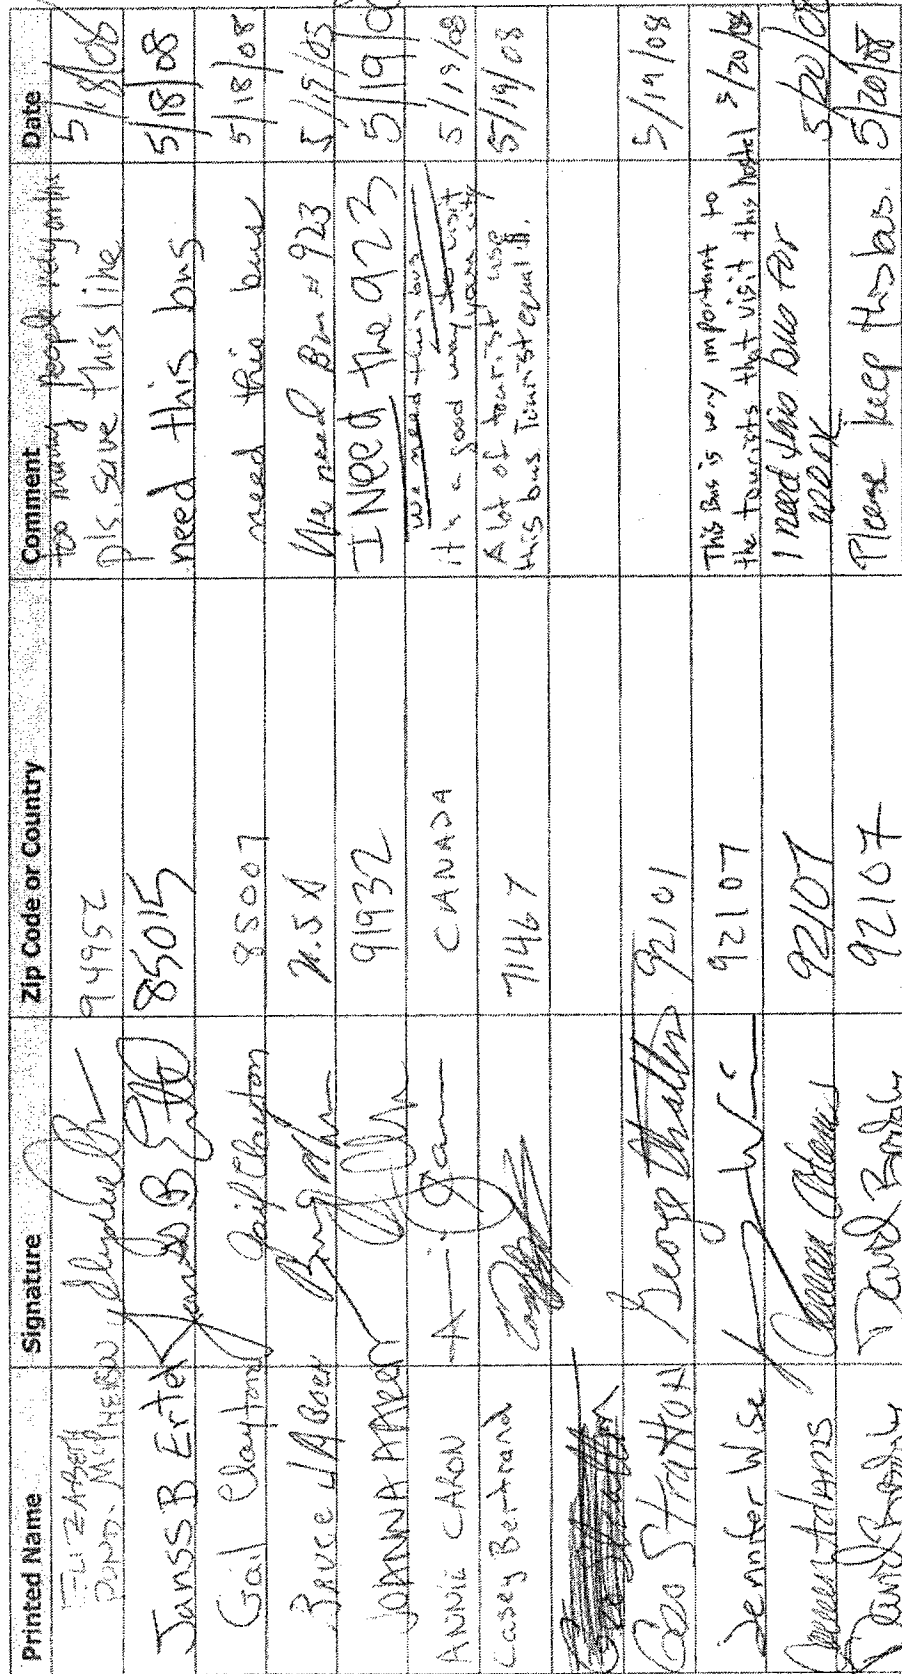 Printed Name Signature Zip Code or Country Comment Date
ELIZABETH 94952 too many people rely on this 5/18/08
pls. save this line
JansB Ertel 85015 need this bus 5/18/08
Gail Clayton Gail Clayton 85007 need this bus 5/18/08
Bruce U.S.A We need Bus # 923 5/19/05
JOANNA 91932 I Need the 923 5/19/0
ANNIE CARON CANADA we need this bus 5/19/08
it's a good way to visit your city
Casey Bertrand 71467 A lot of tourist use 5/19/08
this bus Tourist equal $.
Geo Stratton George Stratton 92101 5/19/08
Jennifer Wise 92107 This Bus is very important to
the tourists that visit this hostel 5/20/08
92107 I need this bus for 5/20/08
WORK
David David 92107 Please keep this bus. 5/20/08